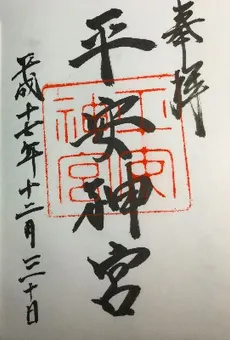 奉拝
平安神宮
平成十七年十二月三十日
平安
神宮